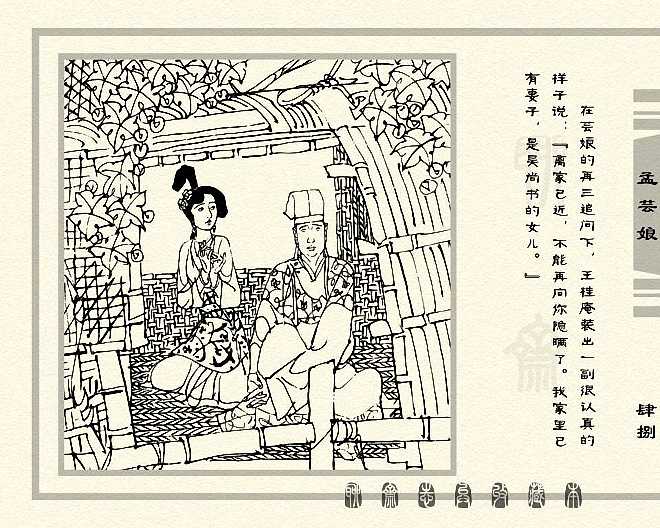 在芸娘的再三追问下，王桂庵装出一副很认真的
样子说：『离家已近，不能再向你隐瞒了。我家里已
有妻子，是吴尚书的女儿。』
孟芸娘
肆捌